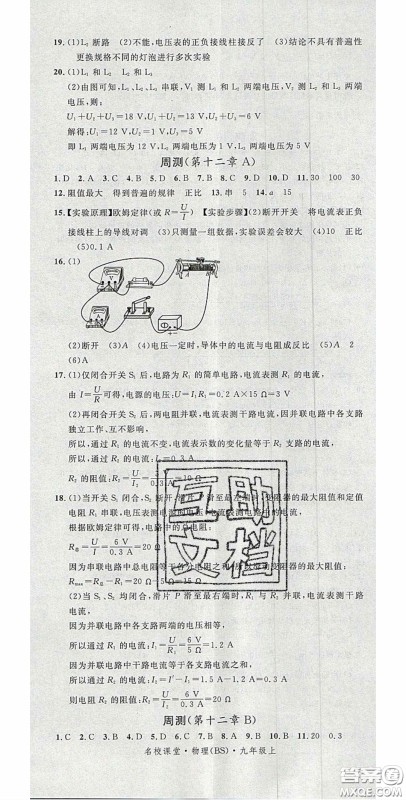 19. (1)L₁ 断路　(2)不能,电压表的正负接线柱接反了　(3)结论不具有普遍性
更换规格不同的灯泡进行多次实验
20. (1)L₁ 和 L₂　L₂ 和 L₃
(2)由图可知,L₁、L₂、L₃ 串联,
电压,则:
U₁+U₂+U₃=18 V,U₁+U₂=
解得:U₁=12 V,U₂=1 V,U₃=5 V
即 L₁ 两端电压为 12 V,L₂ 两端电压为 1 V,L₃ 两端电压为 5 V
周测(第十二章 A)
1. D 2. A 3. C 4. D 5. D 6. B 7. B 8. B 9. A 10. D 11. 30 100 30
12. 阻值最大　得到普遍的规律　正比　13. 串 5　14. a 15
15.【实验原理】欧姆定律(或 R=U/I)　【实验步骤】(2)断开开关　将电流表正负
接线柱上的导线对调　(3)只测量一组数据,实验误差会较大　(4)10 正比
(5)0.1 A
16. (1)
(2)断开　(3)A　(4)电压一定时,导体中的电流与电阻成反比　(5)A 2
(6)A
17. (1)仅闭合开关 S₁ 后,电路为 R₁ 的简单电路,电流表测 R₁ 的电流,
由 I=U/R 可得,电源的电压:U=I₁R₁=0.2 A×15 Ω=3 V
(2)再闭合开关 S₂ 后,两电阻并联,电流表测干路电流,因并联电路中各支路
独立工作、互不影响,
所以,通过 R₁ 的电流不变,电流表示数的变化量等于 R₂ 支路的电流,
所以,通过 R₂ 的电流:
R₂ 的阻值:
18. (1)当开关 S₁ 闭合、S₂ 断开,滑片 P 滑至
电阻串联,电流表测电路中的电流,
根据欧姆定律可得,电路中的总电阻:
R总=U/I=6 V/0.3 A=20 Ω
因为串联电路中总电阻等
Rmax=R总-R₁=20 Ω-5 Ω=15 Ω
(2)当 S₁、S₂ 均闭合,滑片 P 滑至最右端时,
电流,
因为并联电路中各支路两端的电压相等,
所以通过 R₁ 的电流:I₁=U/R₁=6 V/5 Ω=1.2 A
因为并联电路中干路电流等于各支路电流之和,
所以通过 R₂ 的电流:I₂=I'-I₁=1.5 A-1.2 A=0.3 A
则电阻 R₂ 的阻值:R₂=U/I₂=6 V/0.3 A=20 Ω
周测(第十二章 B)
1. C 2. C 3. D 4. C 5. D 6. A 7. B 8. B 9. D 10. B 11. 20 0.3
名校课堂·物理(BS)·九年级上
互助
文档
答案圈
MXQE.COM